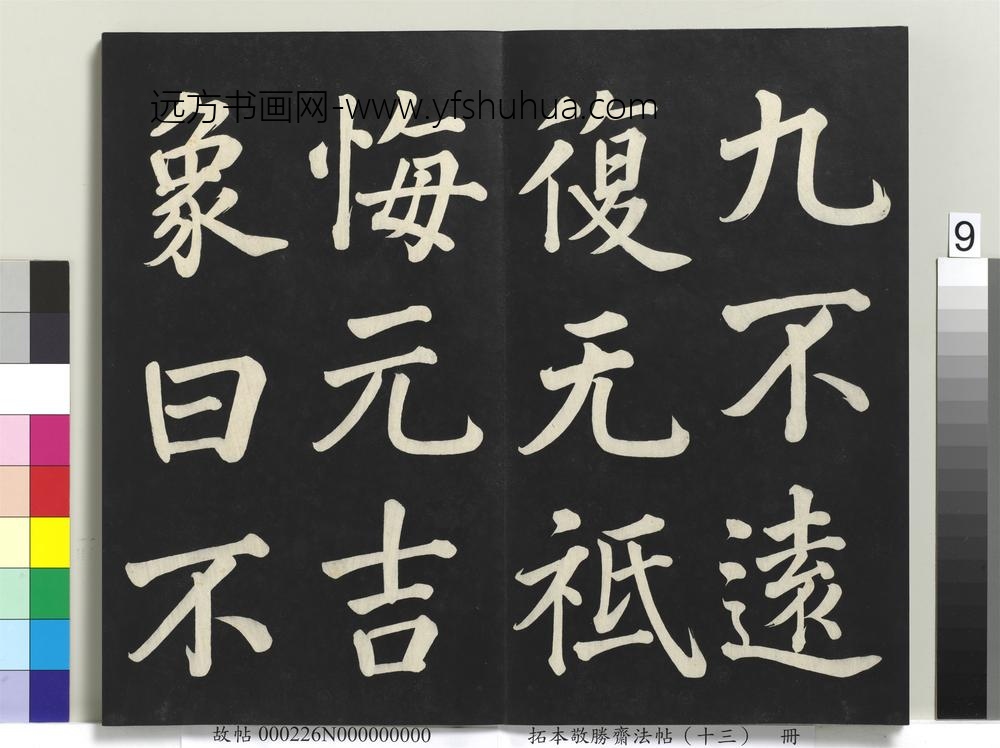 九不遠
復无祇
悔元吉
象曰不
远方书画网-www.yfshuhua.com
9
故帖 000226N000000000
拓本敬勝齋法帖（十三） 冊